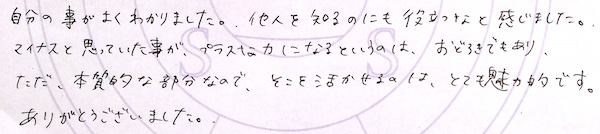 自分の事がよくわかりました。. 他人を知るのにも役立つなと感じました。.
マイナスと思っていた事が、プラスな力になるというのは、おどろきでもあり、
ただ、本質的な部分なので、そこを活かせるのは、とても魅力的です。
ありがとうございました。.
S S